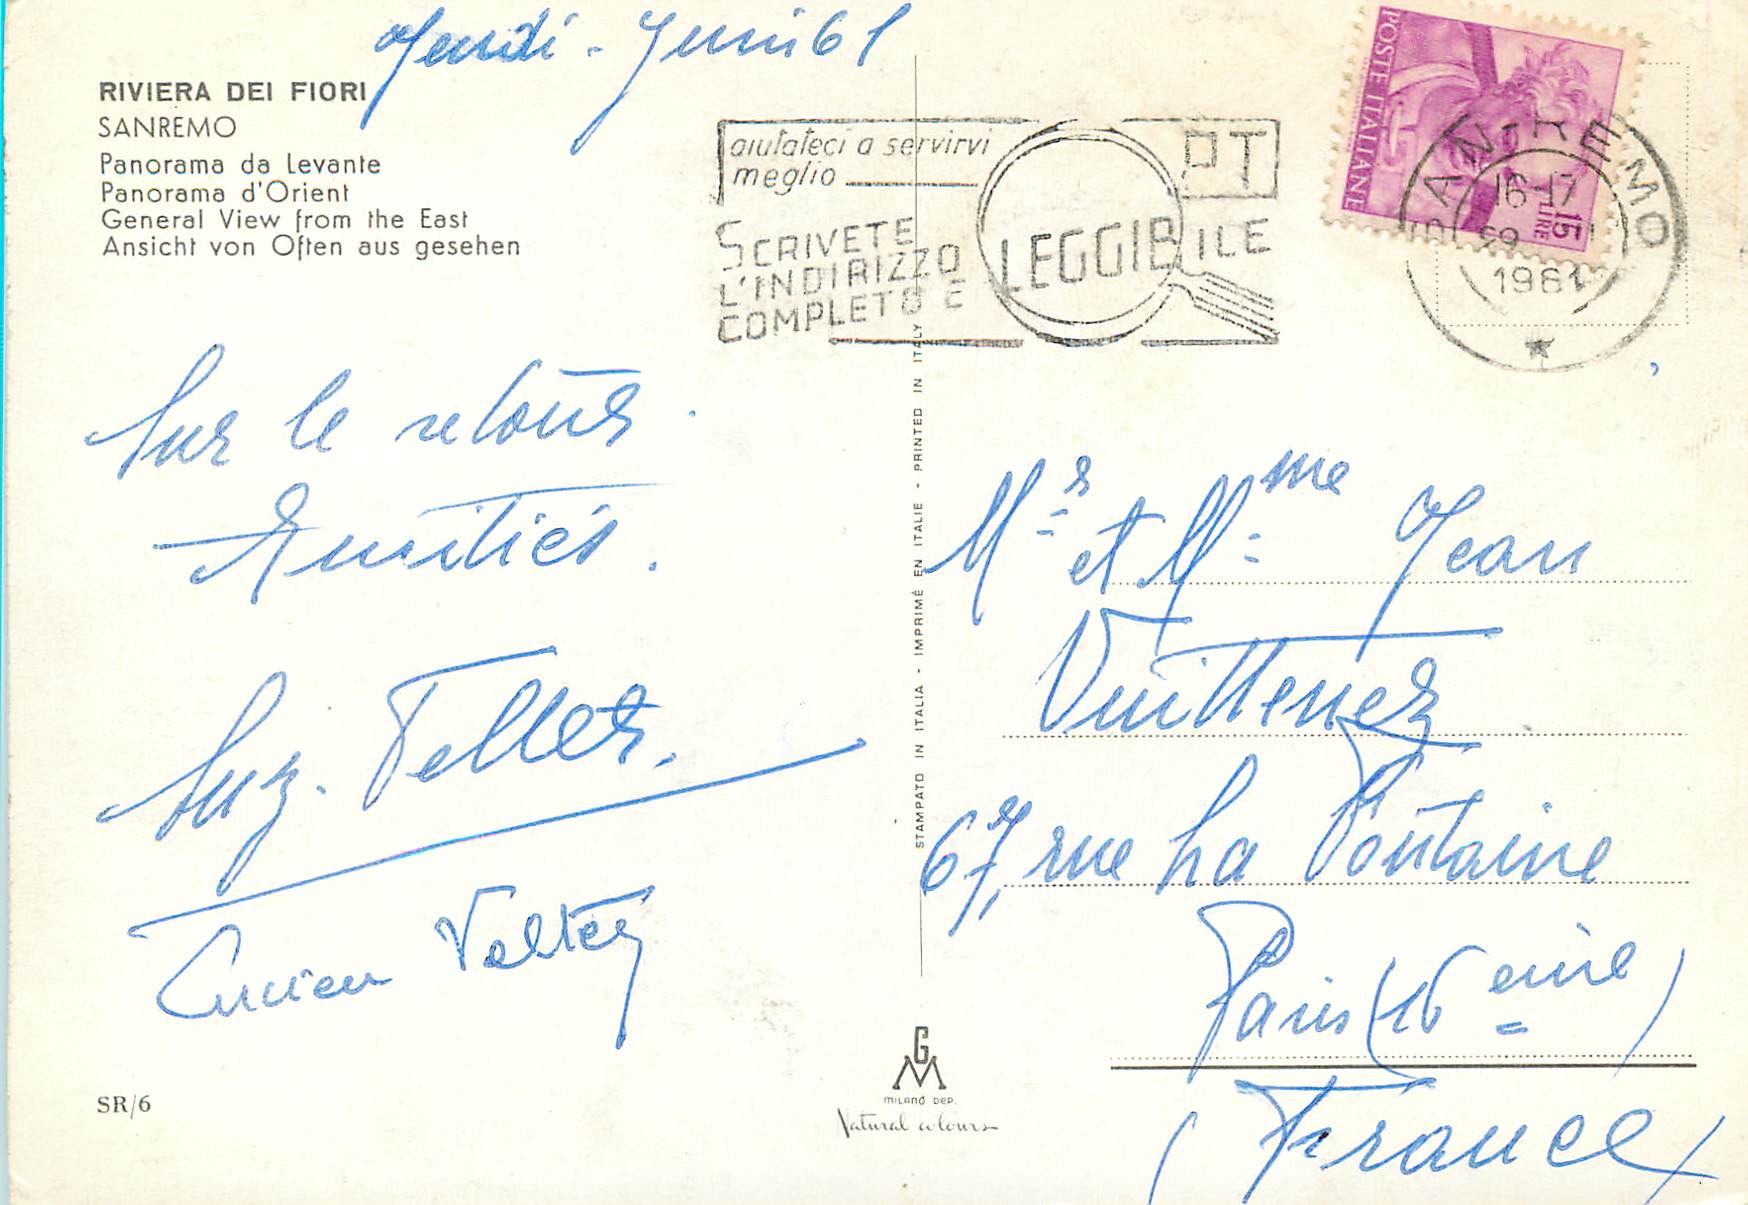 Jeudi - Juin 61
RIVIERA DEI FIORI
SANREMO
Panorama da Levante
Panorama d'Orient
General View from the East
Ansicht von Often aus gesehen
aiutateci a servirvi
meglio
PT
SCRIVETE
L'INDIRIZZO
COMPLETO E LEGGIBILE
POSTE ITALIANE
15 LIRE
SAN-REMO
16-17
29
1961
Sur le retour.
Amitiés.
Suz. Peller.
Lucien
STAMPATO IN ITALIA - IMPRIMÉ EN ITALIE - PRINTED IN ITALY
Mr et Mme Jean
Vuittenez
67, rue La Fontaine
Paris (16 eme)
(France)
SR/6
GM
MILANO DEP.
Natural colours